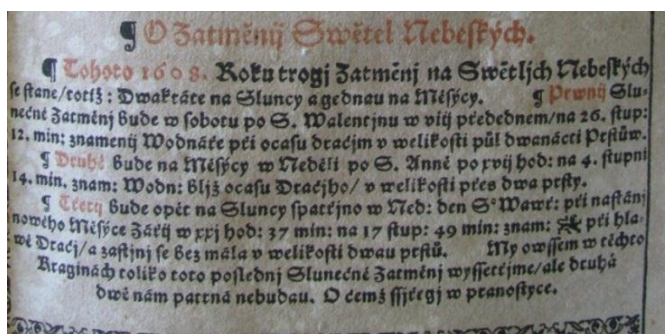 ¶ O Zatměnij Swětel Nebeských.
¶ Tohoto 1608. Roku trogj Zatměnj na Swětljch Nebeských
se stane/totiž: Dwakráte na Slunci a gednau na Měsýcy. ¶ Prwnij Slu-
nečné Zatměnj bude w sobotu po S. Walentjnu w viij předednem/na 26. stup:
12. min: znamenij Wodnáře při ocasu dračjm v welikosti půl dwanácti Prstůw.
¶ Druhé bude na Měsýcy w Neděli po S. Anně po xvij hod: na 4. stupni
14. min. znam: Wodn: bljž ocasu Dračjho/ v welikosti přes dwa prsty.
¶ Třetij bude opět na Slunci spatřjno w Ned: den Sº Wawř: při nastánj
nowého Měsýce Zářij w xxj hod: 37 min: na 17 stup: 49 min: znam: při hla-
wě Dračj/a zastjnj se bez mála v welikosti dwau prstů. My owssem w těchto
Kraginách toliko toto poslednj Slunečné Zatměnj wyssetřjme/ale druhá
dwě nám patrná nebudau. O čemž ssjřegj w pranostyce.